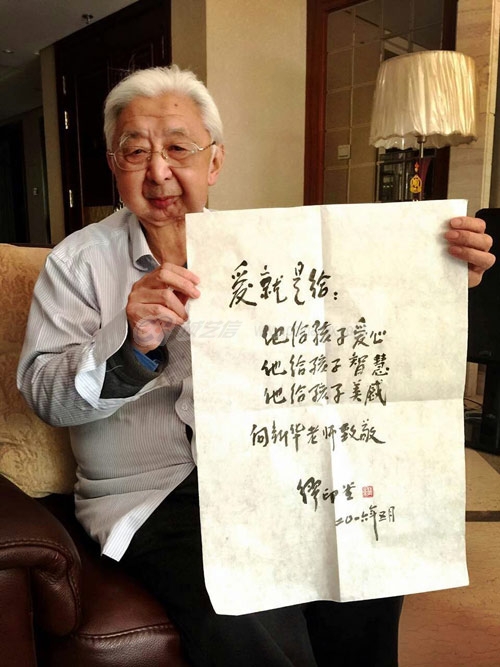 爱就是给：
他给孩子爱心
他给孩子智慧
他给孩子美感
向新华老师致敬
缪印堂
二〇一六年五月